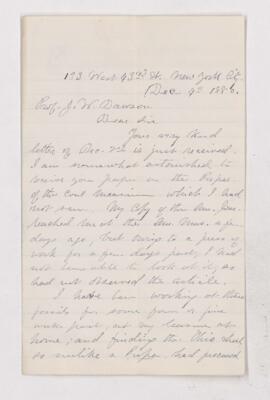 193 West 43rd St. New York City
Dec 9th 188
Prof. J. W. Dawson
Dear Sir
Your very kind
letter of Dec. 2nd is just received.
I am somewhat astonished to
receive your paper on the
of the Coal Measures which I had
not seen. My copy of the Am. Jour.
reached me at the Am. Mus. a few
days ago, but owing to a press of
work for a few days past, I had
not been able to look at it, so
had not observed the article.
I have been working at these
fossils for some four or five
weeks past, at my leisure at
home, and finding the Ohio
so unlike a